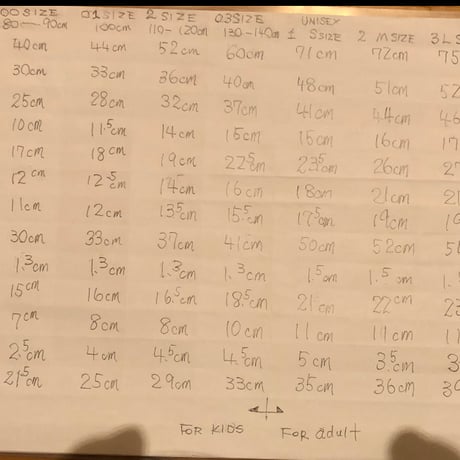 00 SIZE 01 SIZE 2 SIZE 03 SIZE UNISEX
80—90cm 100cm 110-120cm 130-140cm 1 S SIZE 2 M SIZE 3 L S
40cm 44cm 52cm 60cm 71cm 72cm 75
30cm 33cm 36cm 40cm 48cm 51cm 52
25cm 28cm 32cm 37cm 41cm 44cm 46
10cm 11.5cm 14cm 15cm 15cm 16cm 17
17cm 18cm 19cm 22.5cm 23.5cm 26cm 27
12cm 12.5cm 14cm 16cm 18cm 21cm 21
11cm 12cm 13.5cm 15.5cm 17.5cm 19cm 19
30cm 33cm 37cm 41cm 50cm 52cm 5
1.3cm 1.3cm 1.3cm 1.3cm 1.5cm 1.5cm 1.
15cm 16cm 16.5cm 18.5cm 21cm 22cm 23
7cm 8cm 8cm 10cm 11cm 11cm 11
2.5cm 4cm 4.5cm 4.5cm 5cm 3.5cm 3
21.5cm 25cm 29cm 33cm 35cm 36cm 39
FOR KIDS FOR adult